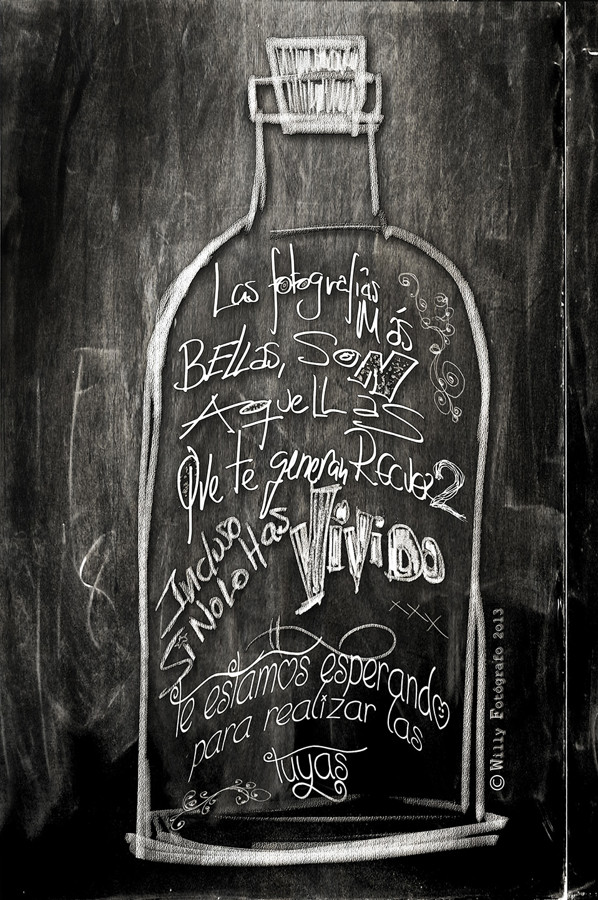 Las fotografías
Más
BELLas, SoN
AqueLLaS
Que te generan Recuer2
Incluso
Si No Lo Has
ViViDo
xxx
te estamos esperando
para realizar las
tuyas
© Willy Fotógrafo 2013